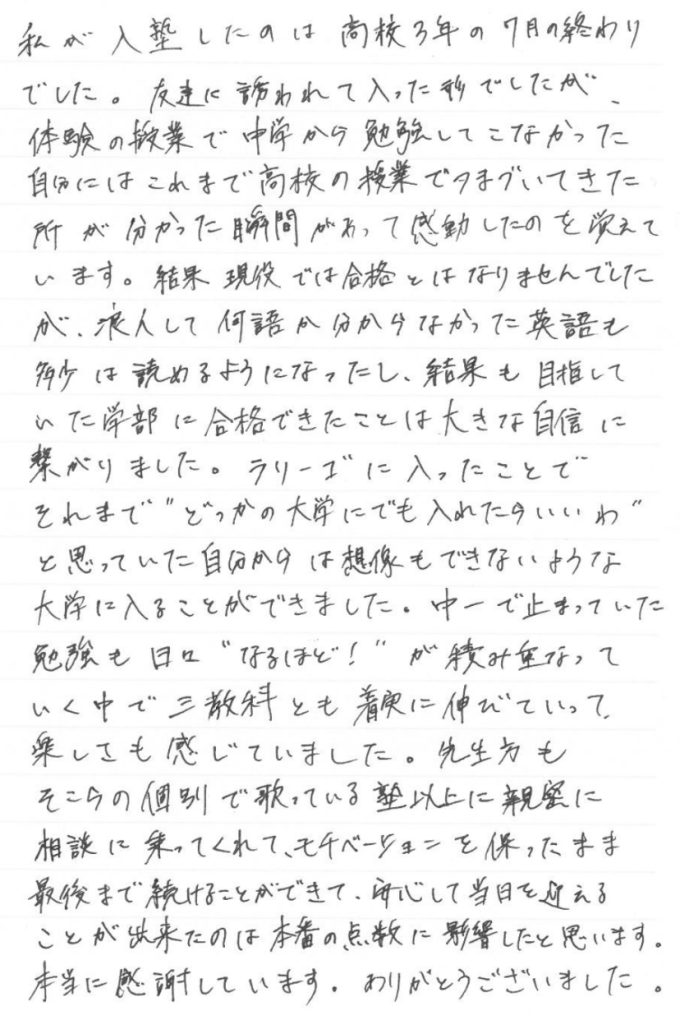 私が入塾したのは高校3年の7月の終わり
でした。友達に誘われて入った形でしたが、
体験の授業で中学から勉強してこなかった
自分にはこれまで高校の授業でつまづいてきた
所が分かった瞬間があって感動したのを覚えて
います。結果現役では合格とはなりませんでした
が、浪人して何語か分からなかった英語も
多少は読めるようになったし、結果も目指して
いた学部に合格できたことは大きな自信に
繋がりました。ラリーゴに入ったことで
それまで"どっかの大学にでも入れたらいいわ"
と思っていた自分からは想像もできないような
大学に入ることができました。中一で止まっていた
勉強も日々"なるほど!"が積み重なって
いく中で三教科とも着実に伸びていって、
楽しさも感じていました。先生方も
そこらの個別で歌っている塾以上に親密に
相談に乗ってくれて、モチベーションを保ったまま
最後まで続けることができて、安心して当日を迎える
ことが出来たのは本番の点数に影響したと思います。
本当に感謝しています。ありがとうございました。